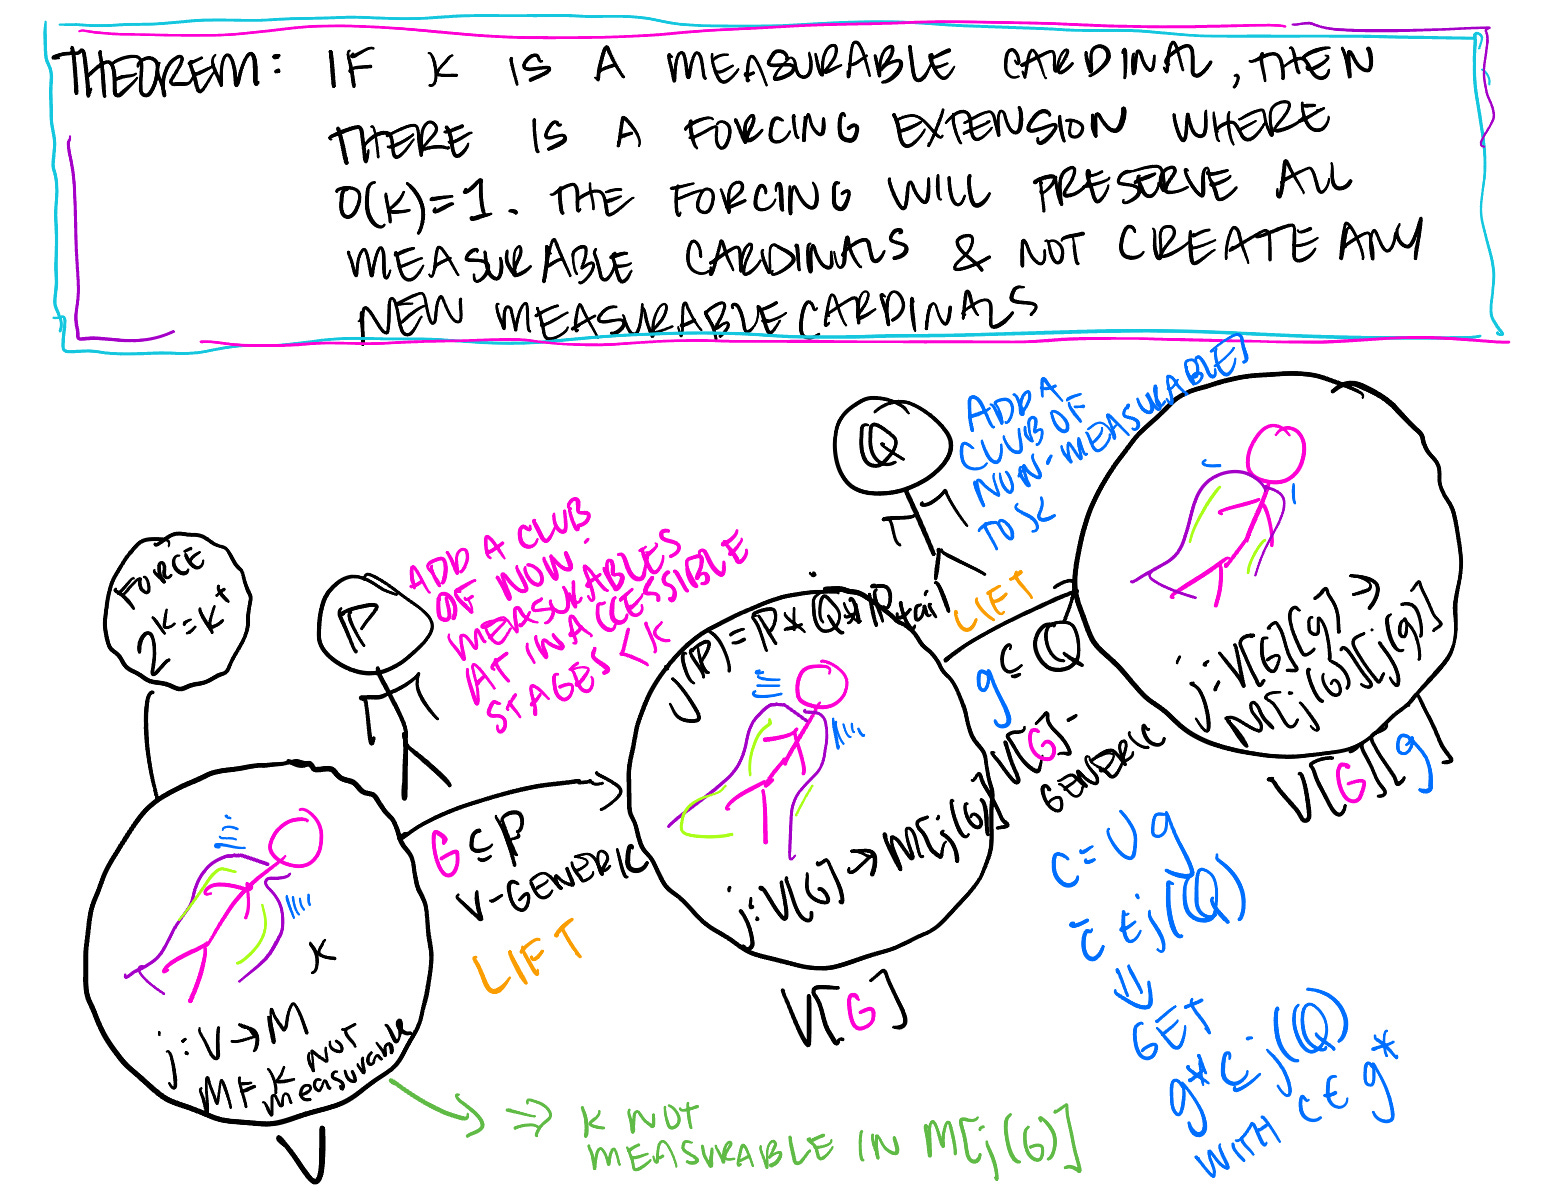 THEOREM: IF κ IS A MEASURABLE CARDINAL, THEN
THERE IS A FORCING EXTENSION WHERE
O(κ)=1. THE FORCING WILL PRESERVE ALL
MEASURABLE CARDINALS & NOT CREATE ANY
NEW MEASURABLE CARDINALS
FORCE
2^κ=κ⁺
ℙ
ADD A CLUB
OF NON-
MEASURABLES
AT INACCESSIBLE
STAGES < κ
κ
j: V → M
M ⊨ κ NOT
measurable
V
G ⊆ ℙ
V-GENERIC
LIFT
j(ℙ) = ℙ * Q̇ * ℙtail
j: V[G] → M[j(G)]
V[G]
ℚ
ADD A
CLUB OF
NON-MEASURABLES
TO κ
LIFT
g ⊆ ℚ
V[G]-
GENERIC
j: V[G][g] →
M[j(G)][j(g)]
V[G][g]
C = ∪g
C̄ ∈ j(ℚ)
⇓
GET
g* ⊆ j(ℚ)
WITH C ∈ g*
⇒ κ NOT
MEASURABLE IN M[j(G)]